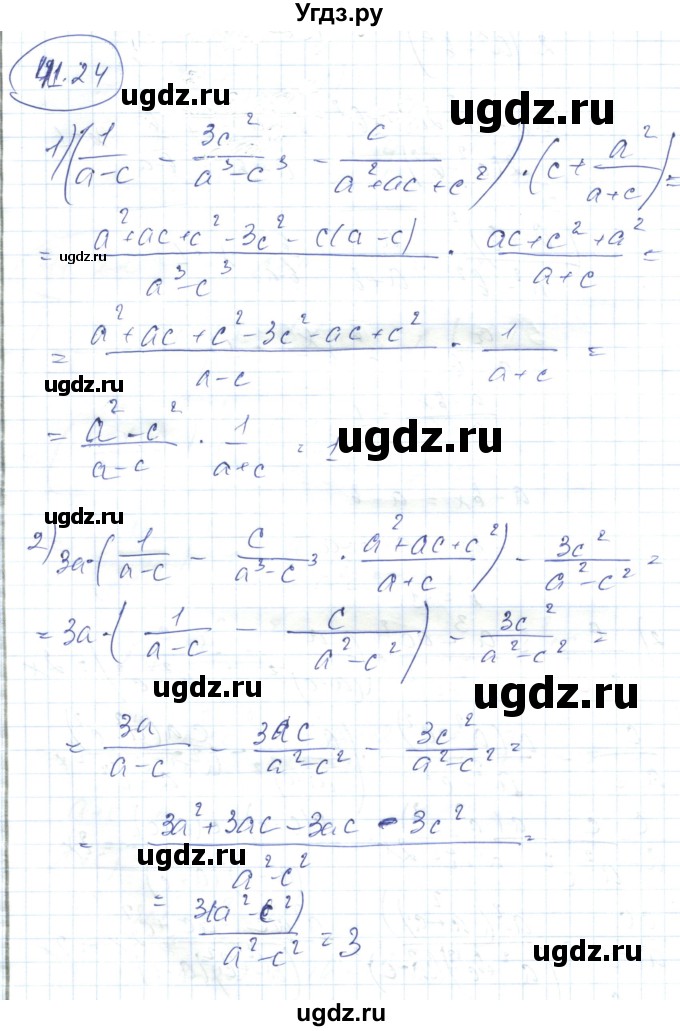 Угдз.ру
41.24
ugdz.ru ugdz.ru
1) (1/(a-c) - 3c²/(a³-c³) - c/(a²+ac+c²)) · (c + a²/(a+c)) =
= (a²+ac+c²-3c²-c(a-c))/(a³-c³) · (ac+c²+a²)/(a+c) =
ugdz.ru
= (a²+ac+c²-3c²-ac+c²)/(a-c) · 1/(a+c) =
ugdz.ru ugdz.ru
= (a²-c²)/(a-c) · 1/(a+c) = 1
ugdz.ru
2) 3a·(1/(a-c) - c/(a³-c³) · (a²+ac+c²)/(a+c)) - 3c²/(a²-c²) =
= 3a·(1/(a-c) - c/(a²-c²)) - 3c²/(a²-c²) =
ugdz.ru ugdz.ru
= 3a/(a-c) - 3ac/(a²-c²) - 3c²/(a²-c²) =
= (3a²+3ac-3ac-3c²)/(a²-c²) =
ugdz.ru
= 3(a²-c²)/(a²-c²) = 3
ugdz.ru ugdz.ru
ugdz.ru